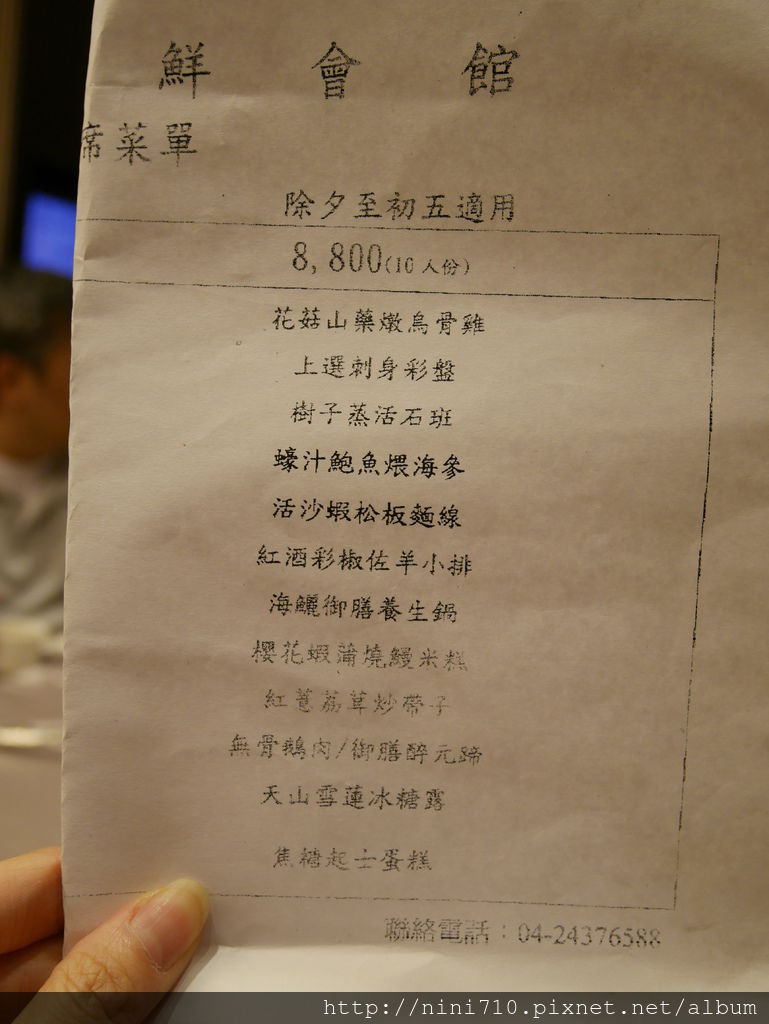 鮮會館
席菜單
除夕至初五適用
8,800(10人份)
花菇山藥燉烏骨雞
上選刺身彩盤
樹子蒸活石班
蠔汁鮑魚煨海參
活沙蝦松板麵線
紅酒彩椒佐羊小排
海鱺御膳養生鍋
櫻花蝦蒲燒鰻米糕
紅薏荔茸炒帶子
無骨鵝肉/御膳醉元蹄
天山雪蓮冰糖露
焦糖起士蛋糕
聯絡電話：04-24376588
http://nini710.pixnet.net/album